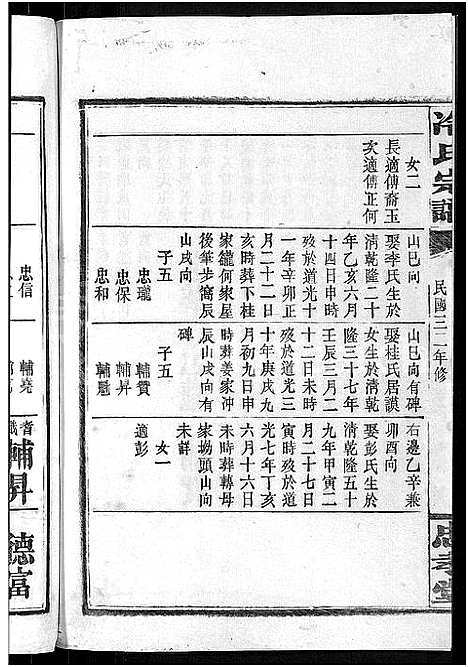 冷氏宗譜
民國三二年修
忠孝堂
女二
長適傅裔玉
次適傅正何
山巳向
娶李氏生於
清乾隆二十
年乙亥六月
十四日申時
歿於道光十
一年辛卯正
月二十二日
亥時葬下桂
家鑵何家屋
後華步窩辰
山戌向
子五
忠瓏
忠保
忠和
山巳向有碑
娶桂氏居謨
女生於清乾
隆三十七年
壬辰三月二
十二日未時
歿於道光三
十年庚戌九
月初九日巳
時葬姜家冲
辰山戌向有
碑
子五
輔贊
輔昇
輔魁
右邊乙辛兼
卯酉向
娶彭氏生於
清乾隆五十
九年甲寅二
月二十七日
寅時歿於道
光七年丁亥
六月十六日
未時葬轉母
家坳頭山向
未詳
女一
適彭
忠信
輔堯
耆
輔昇
德富